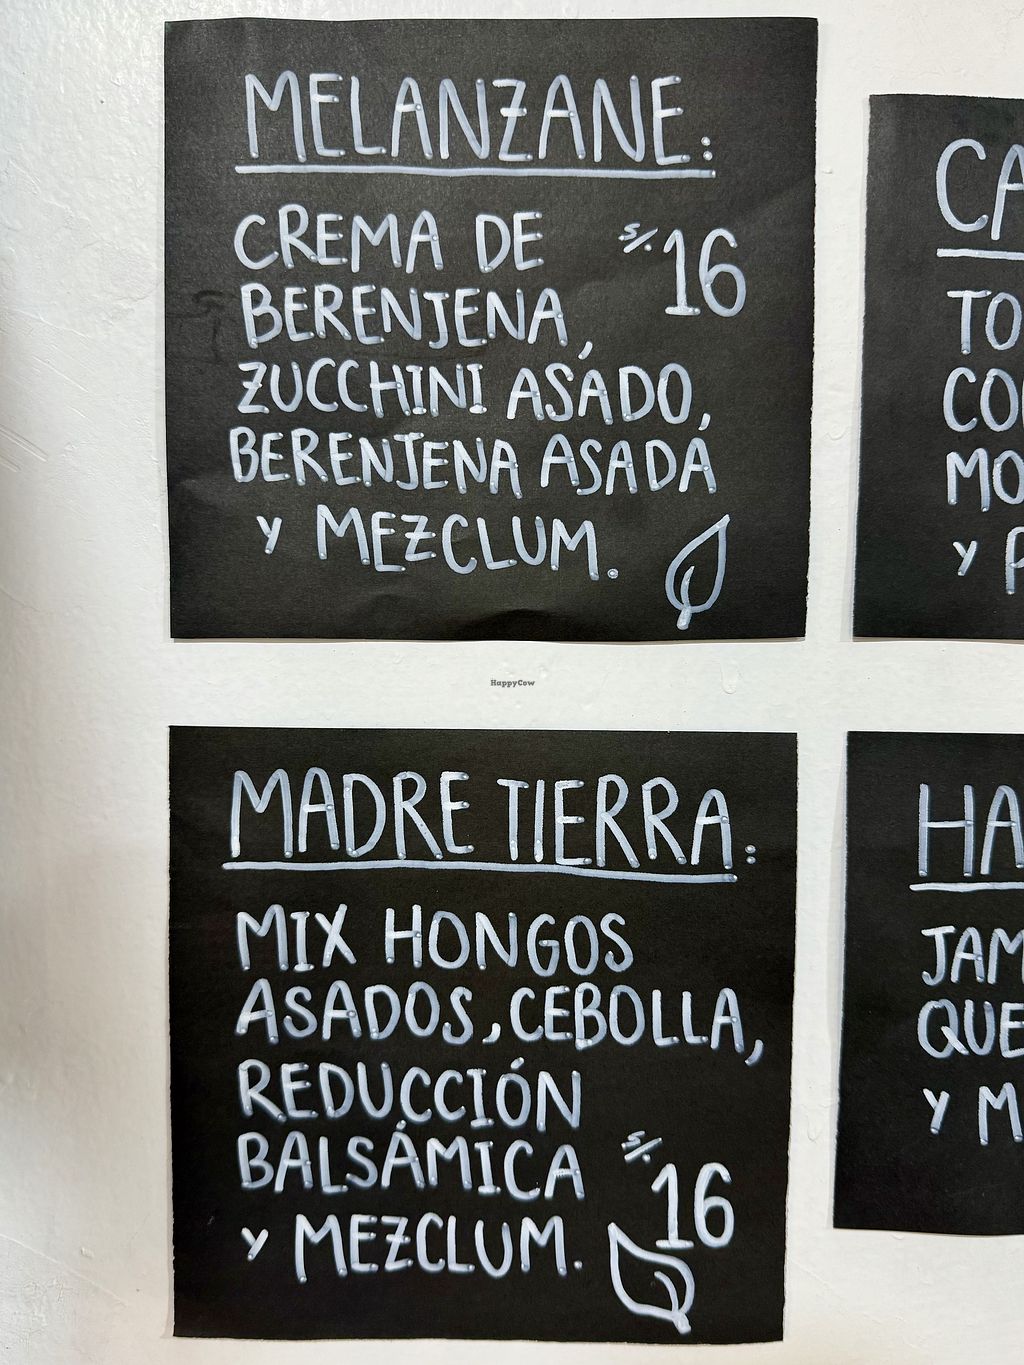 MELANZANE:
CREMA DE
S/.16
BERENJENA,
ZUCCHINI ASADO,
BERENJENA ASADA
Y MEZCLUM.
CA
TO
CO
MO
Y P
HappyCow
MADRE TIERRA:
MIX HONGOS
ASADOS, CEBOLLA,
REDUCCIÓN
BALSÁMICA
S/.16
Y MEZCLUM.
HA
JAM
QUE
Y M